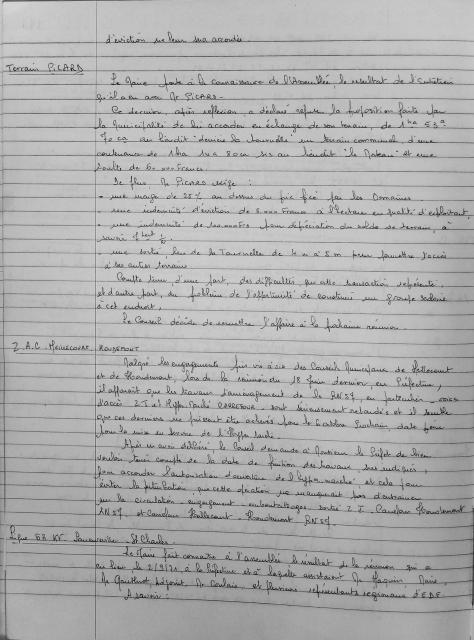 d'éviction ne leur sera accordée.
Terrain PICARD
Le Maire porte à la connaissance de l'Assemblée, le résultat de l'entretien
qu'il a eu avec Mr PICARD -
Ce dernier, après réflexion, a déclaré refuser la proposition faite par
la Municipalité de lui accorder en échange de son terrain, de 1 ha 53 a
70 ca au lieudit "derrière la Tournelle un terrain communal, d'une
contenance de 1 ha 80 ca sis au lieudit "le Plateau" et une
soulte de 60 000 Francs.
De plus, Mr PICARD exige :
- une marge de 25% au dessus du prix fixé par les Domaines
- une indemnité d'éviction de 5 000 Francs à l'hectare en qualité d'exploitant,
- une indemnité de pour dépréciation du solde de terrain, à
savoir
- une sortie rue de la Tournelle de 4 m à 5 m pour permettre l'accès
à ses autres terrains
Compte tenu d'une part, des difficultés que cette transaction représente,
et d'autre part, du problème de l'opportunité de construire un groupe scolaire
à cet endroit,
Le Conseil décide de remettre l'affaire à la prochaine réunion.
Z.A.C. HAUDEMONT
Malgré les engagements pris vis à vis des Conseils Municipaux
et de lors de la réunion du 18 Juin dernier, en Préfecture,
il apparait que les travaux d'aménagement de la RN 57, en particulier
d'accès Z.I et Hyper Marché CARREFOUR, sont sérieusement retardés et il semble
que ces derniers ne puissent être achevés pour le Octobre prochain, date prévue
pour la mise en service de l'Hyper Marché.
Après en avoir délibéré, le Conseil demande à Monsieur le Préfet de bien
vouloir tenir compte de la date de finition des travaux sus indiqués,
pour accorder l'autorisation d'ouverture de l'hypermarché et cela pour
éviter la perturbation que cette opération ne manquerait pas d'entrainer
sur la circulation : engagement - embouteillages, sortie Z.I. Carrefour
RN 57, et Carrefour RN 57
Ligne 63 KV St Charles
Le Maire fait connaître à l'assemblée le résultat de la réunion qui a
eu lieu le 2/9/71 à la Préfecture et à laquelle assistaient Mr Maire,
Mr adjoint, Mr et plusieurs représentants régionaux d'EDF
A savoir :